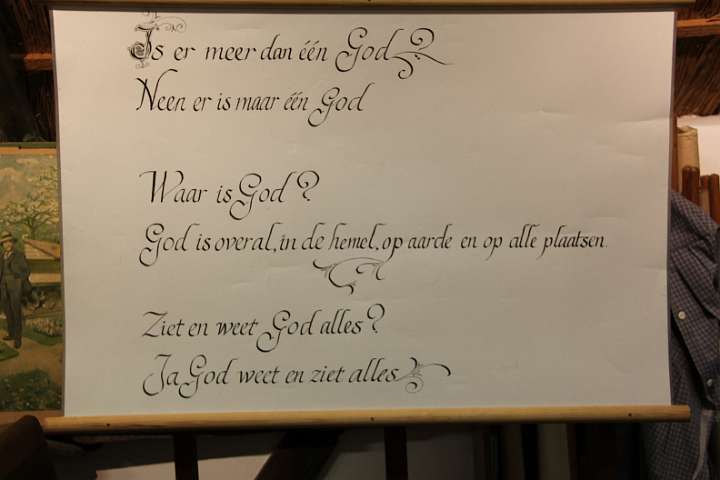 Is er meer dan één God?
Neen er is maar één God
Waar is God?
God is overal, in de hemel, op aarde en op alle plaatsen.
Ziet en weet God alles?
Ja God weet en ziet alles